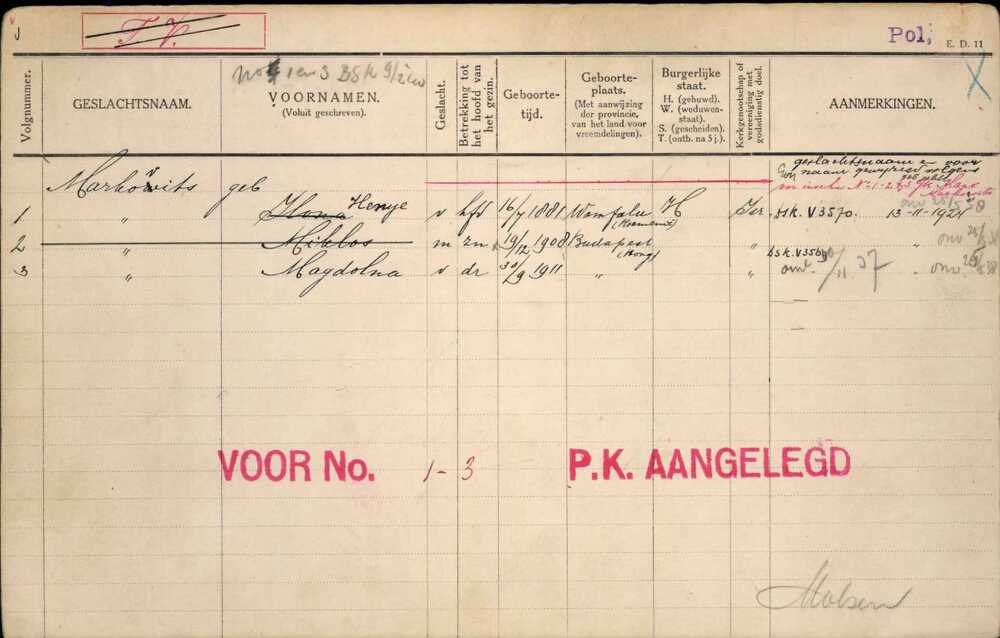 J
T. V.
Pol,
E. D. 11
No 1 en 3 BSK
Volgnummer.
GESLACHTSNAAM.
VOORNAMEN.
(Voluit geschreven).
Geslacht.
Betrekking tot
het hoofd van
het gezin.
Geboorte-
tijd.
Geboorte-
plaats.
(Met aanwijzing
der provincie,
van het land voor
vreemdelingen).
Burgerlijke
staat.
H. (gehuwd).
W. (weduwen-
staat).
S. (gescheiden).
T. (ontb. na 5 j.).
Kerkgenootschap of
vereeniging met
godsdienstig doel.
AANMERKINGEN.
geslachtsnaam en voor
naam gewijzigd volgens
Markovits geb
1 " Ilona Henye v hfd 16/7 1881 H Isr bsk. V3570. 13-11-1924
2 " Miklos m zn 19/12 1908 Budapest (Hong) " "
3 " Magdolna v dr 30/9 1911 " " bsk. V3569 11 37 "
VOOR No. 1-3 P.K. AANGELEGD